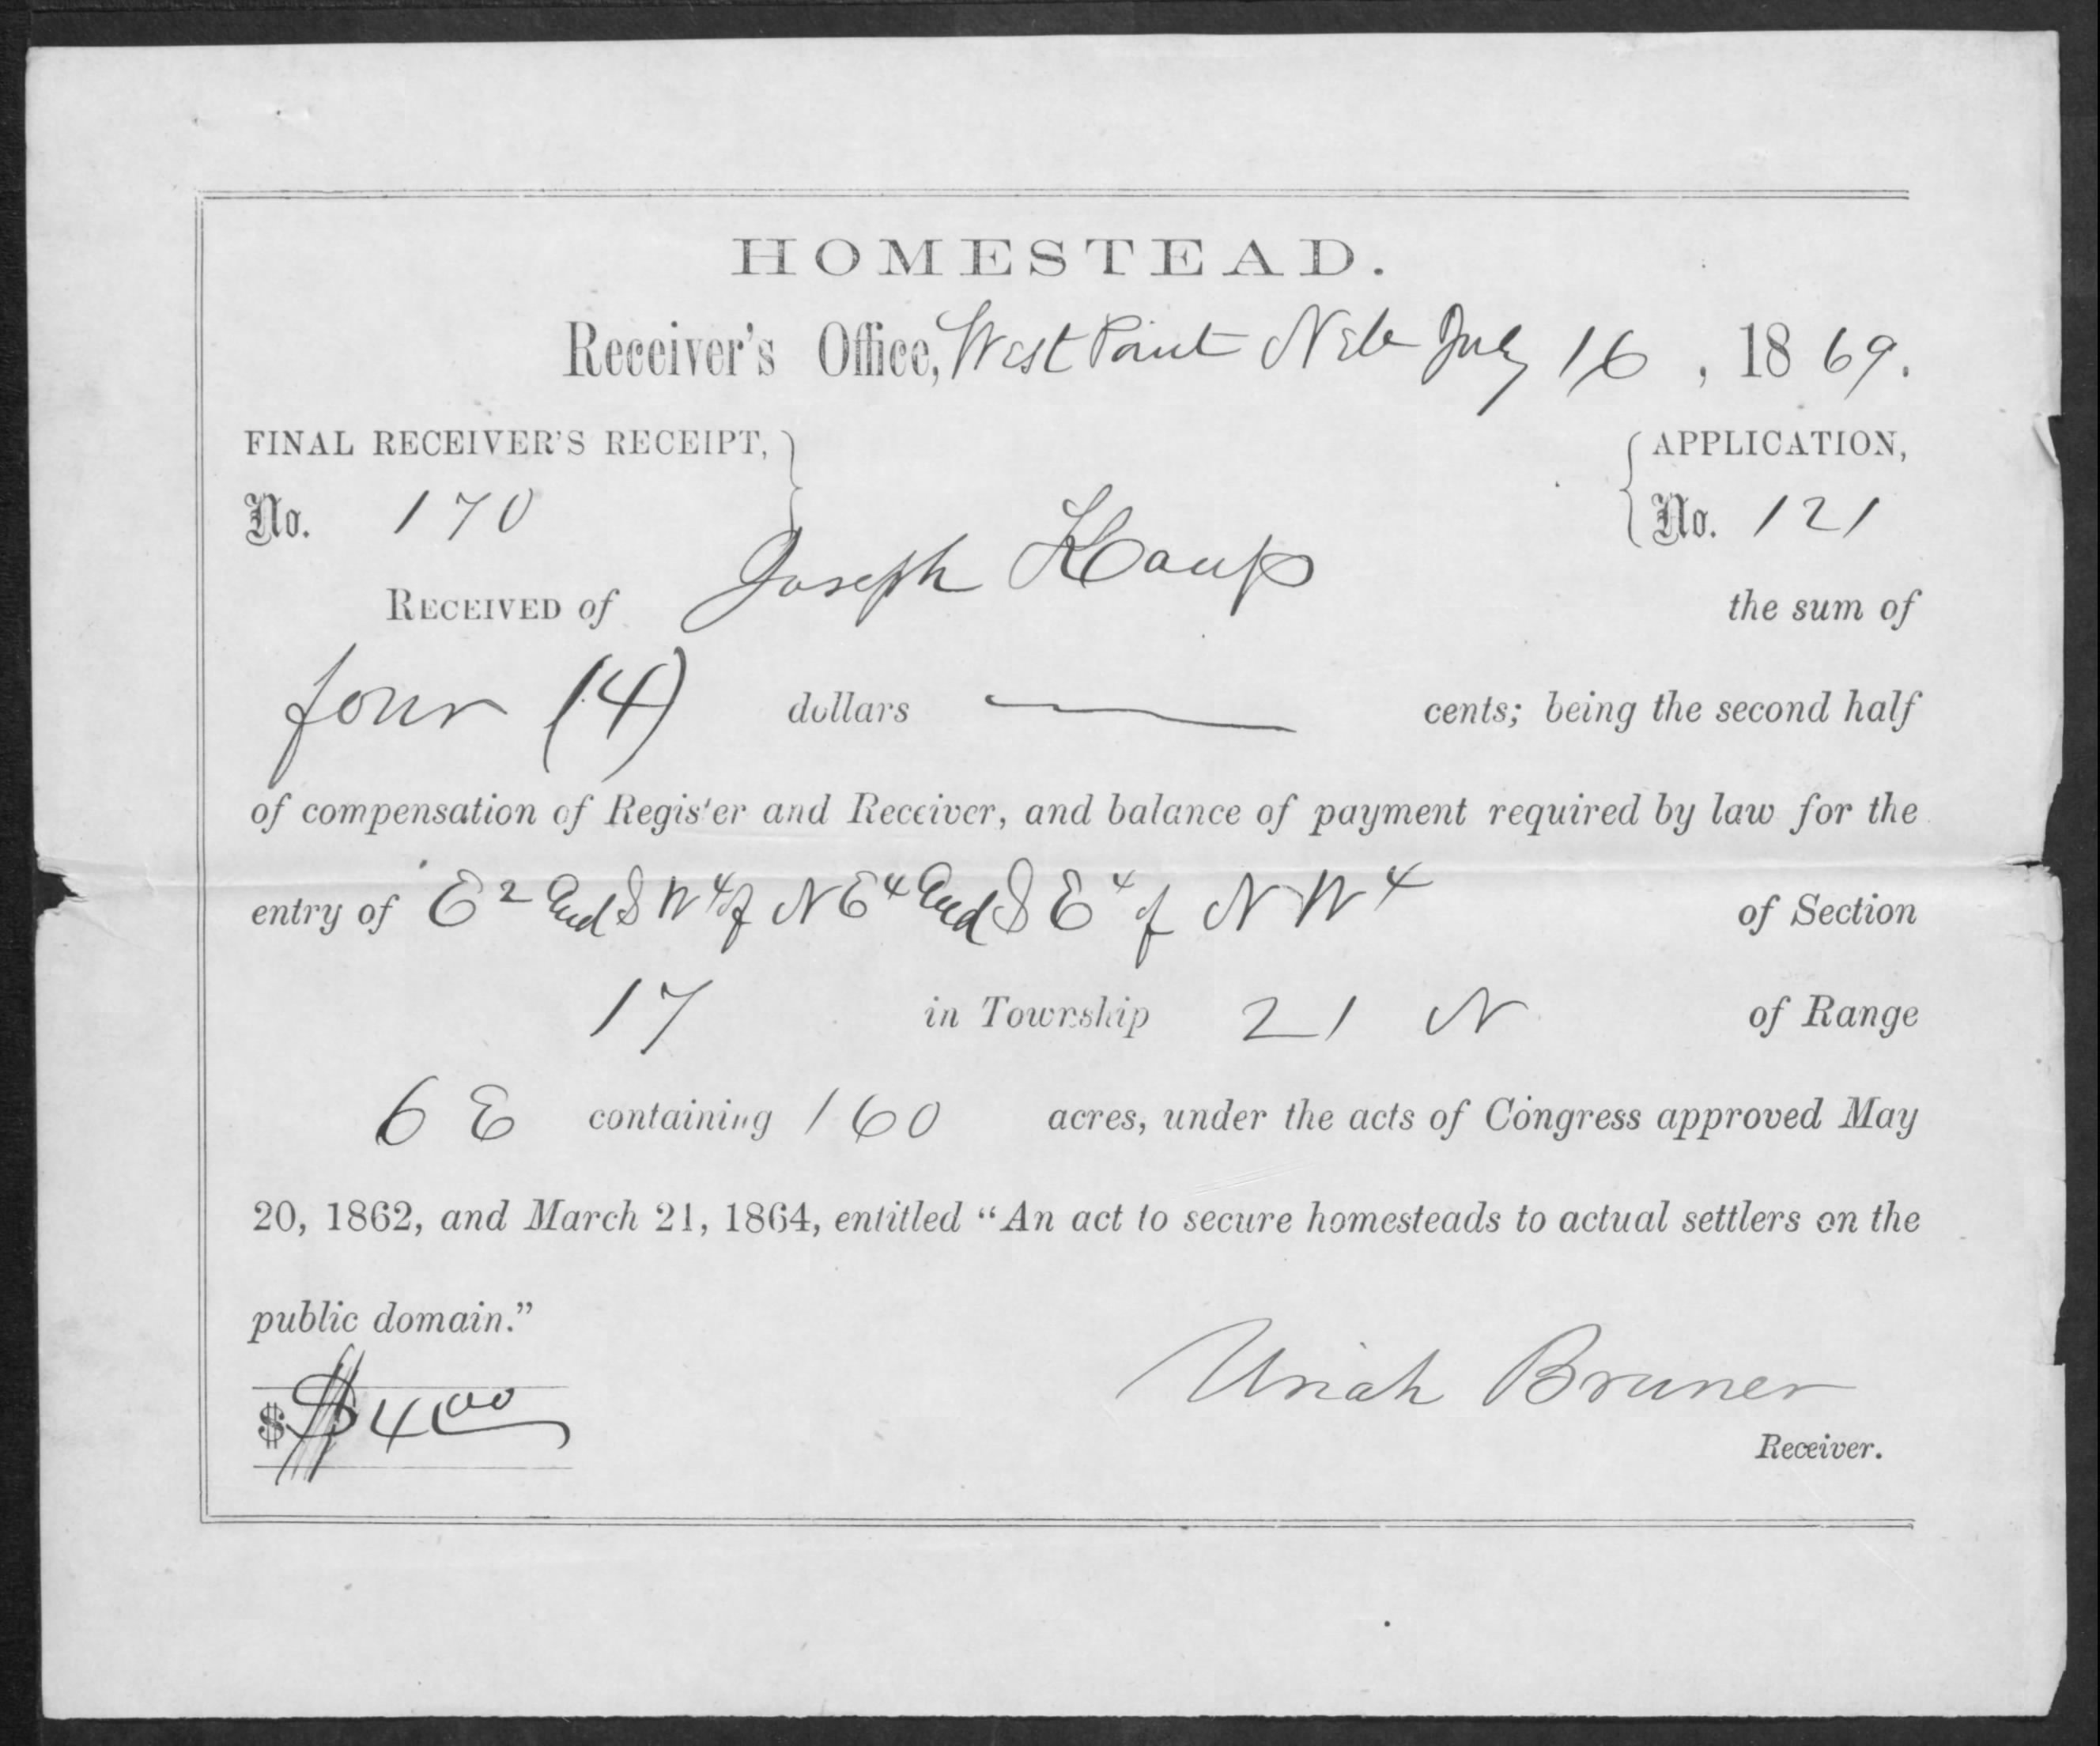 HOMESTEAD.
Receiver's Office, West Point Neb July 16, 1869.
FINAL RECEIVER'S RECEIPT, } { APPLICATION,
No. 170 No. 121
RECEIVED of Joseph Kaup the sum of
four (4) dollars — cents; being the second half
of compensation of Register and Receiver, and balance of payment required by law for the
entry of E2 and SW4 of NE4 and SE4 of NW4 of Section
17 in Township 21 N of Range
6 E containing 160 acres, under the acts of Congress approved May
20, 1862, and March 21, 1864, entitled “An act to secure homesteads to actual settlers on the
public domain.”
$ $4 00
Uriah Bruner
Receiver.